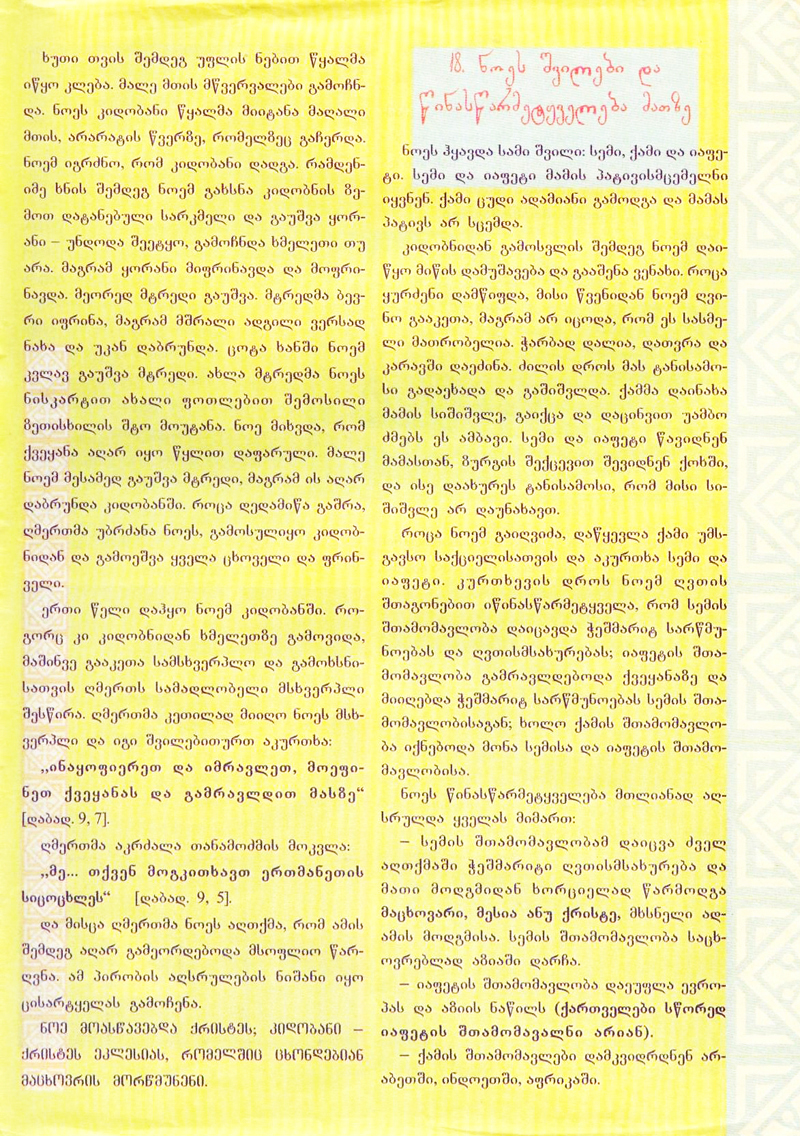 ხუთი თვის შემდეგ უფლის ნებით წყალმა
იწყო კლება. მალე მთის მწვერვალები გამოჩნ-
და. ნოეს კიდობანი წყალმა მიიტანა მაღალი
მთის, არარატის წვერზე, რომელზეც გაჩერდა.
ნოემ იგრძნო, რომ კიდობანი დადგა. რამდენ-
იმე ხნის შემდეგ ნოემ გახსნა კიდობნის ზე-
მოთ დატანებული სარკმელი და გაუშვა ყორ-
ანი – უნდოდა შეეტყო, გამოჩნდა ხმელეთი თუ
არა. მაგრამ ყორანი მიფრინავდა და მოფრი-
ნავდა. მეორედ მტრედი გაუშვა. მტრედმა ბევ-
რი იფრინა, მაგრამ მშრალი ადგილი ვერსად
ნახა და უკან დაბრუნდა. ცოტა ხანში ნოემ
კვლავ გაუშვა მტრედი. ახლა მტრედმა ნოეს
ნისკარტით ახალი ფოთლებით შემოსილი
ზეთისხილის შტო მოუტანა. ნოე მიხვდა, რომ
ქვეყანა აღარ იყო წყლით დაფარული. მალე
ნოემ მესამედ გაუშვა მტრედი, მაგრამ ის აღარ
დაბრუნდა კიდობანში. როცა დედამიწა გაშრა,
ღმერთმა უბრძანა ნოეს, გამოსულიყო კიდობ-
ნიდან და გამოეშვა ყველა ცხოველი და ფრინ-
ველი.
ერთი წელი დაჰყო ნოემ კიდობანში. რო-
გორც კი კიდობნიდან ხმელეთზე გამოვიდა,
მაშინვე გააკეთა სამსხვერპლო და გამოხსნი-
სათვის ღმერთს სამადლობელი მსხვერპლი
შესწირა. ღმერთმა კეთილად მიიღო ნოეს მსხ-
ვერპლი და იგი შვილებითურთ აკურთხა:
„ინაყოფიერეთ და იმრავლეთ, მოეფი-
ნეთ ქვეყანას და გამრავლდით მასზე“
[დაბად. 9, 7].
ღმერთმა აკრძალა თანამოძმის მოკვლა:
„მე... თქვენ მოგკითხავთ ერთმანეთის
სიცოცხლეს“ [დაბად. 9, 5].
და მისცა ღმერთმა ნოეს აღთქმა, რომ ამის
შემდეგ აღარ გამეორდებოდა მსოფლიო წარ-
ღვნა. ამ პირობის აღსრულების ნიშანი იყო
ცისარტყელას გამოჩენა.
ნოე მოასწავებდა ქრისტეს; კიდობანი –
ქრისტეს ეკლესიას, რომელშიც ცხონდებიან
მაცხოვრის მორწმუნენი.
18. ნოეს შვილები და
წინასწარმეტყველება მათზე
ნოეს ჰყავდა სამი შვილი: სემი, ქამი და იაფე-
ტი. სემი და იაფეტი მამის პატივისმცემელნი
იყვნენ. ქამი ცუდი ადამიანი გამოდგა და მამას
პატივს არ სცემდა.
კიდობნიდან გამოსვლის შემდეგ ნოემ დაი-
წყო მიწის დამუშავება და გააშენა ვენახი. როცა
ყურძენი დამწიფდა, მისი წვენიდან ნოემ ღვი-
ნო გააკეთა, მაგრამ არ იცოდა, რომ ეს სასმე-
ლი მათრობელია. ჭარბად დალია, დათვრა და
კარავში დაეძინა. ძილის დროს მას ტანისამო-
სი გადაეხადა და გაშიშვლდა. ქამმა დაინახა
მამის სიშიშვლე, გაიქცა და დაცინვით უამბო
ძმებს ეს ამბავი. სემი და იაფეტი წავიდნენ
მამასთან, ზურგის შექცევით შევიდნენ ქოხში,
და ისე დაახურეს ტანისამოსი, რომ მისი სი-
შიშვლე არ დაუნახავთ.
როცა ნოემ გაიღვიძა, დაწყევლა ქამი უმს-
გავსო საქციელისათვის და აკურთხა სემი და
იაფეტი. კურთხევის დროს ნოემ ღვთის
შთაგონებით იწინასწარმეტყველა, რომ სემის
შთამომავლობა დაიცავდა ჭეშმარიტ სარწმუ-
ნოებას და ღვთისმსახურებას; იაფეტის შთა-
მომავლობა გამრავლდებოდა ქვეყანაზე და
მიიღებდა ჭეშმარიტ სარწმუნოებას სემის შთა-
მომავლობისაგან; ხოლო ქამის შთამომავლო-
ბა იქნებოდა მონა სემისა და იაფეტის შთამო-
მავლობისა.
ნოეს წინასწარმეტყველება მთლიანად აღ-
სრულდა ყველას მიმართ:
– სემის შთამომავლობამ დაიცვა ძველ
აღთქმაში ჭეშმარიტი ღვთისმსახურება და
მათი მოდგმიდან ხორციელად წარმოდგა
მაცხოვარი, მესია ანუ ქრისტე, მხსნელი ად-
ამის მოდგმისა. სემის შთამომავლობა საცხ-
ოვრებლად აზიაში დარჩა.
– იაფეტის შთამომავლობა დაეუფლა ევრო-
პას და აზიის ნაწილს (ქართველები სწორედ
იაფეტის შთამომავალნი არიან).
– ქამის შთამომავლები დამკვიდრდნენ არ-
აბეთში, ინდოეთში, აფრიკაში.